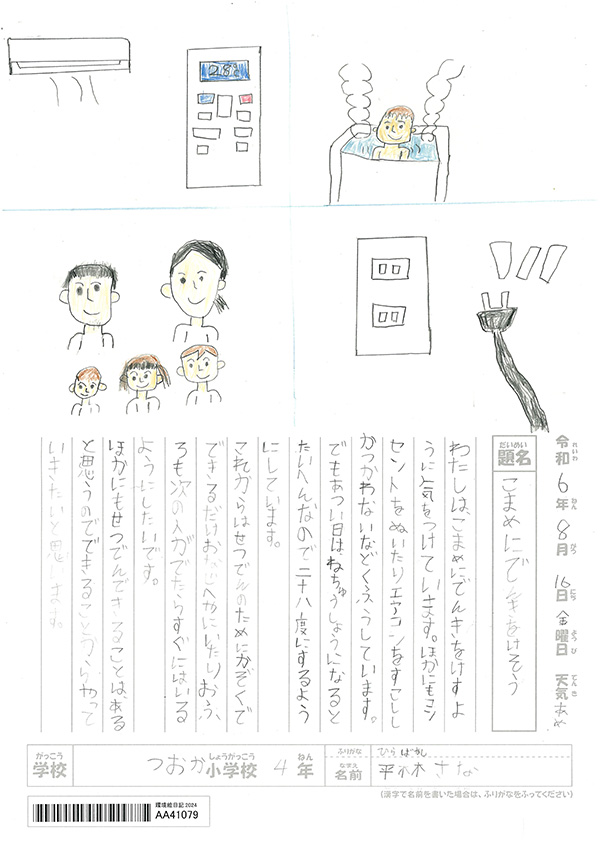 28℃
令和6年8月16日金曜日 天気あめ
れいわ ねん がつ にち ようび てんき
だいめい
題名 こまめにでんきをけそう
わたしは、こまめにでんきをけすよ
うに気をつけています。ほかにもコン
セントをぬいたりエアコンをすこしし
かつかわないなどくふうしています。
でもあつい日は、ねちゅうしょうになると
たいへんなので二十八度にするよう
にしています。
これからはせつでんのためにかぞくで
できるだけおなじへやにいたりおふ
ろも次の人がでたらすぐにはいる
ようにしたいです。
ほかにもせつでんできることは、ある
と思うのでできることからやって
いきたいと思います。
がっこう しょうがっこう ねん
学校 つおか小学校 4年
ふりがな ひらばやし
なまえ
名前 平林 さな
(漢字で名前を書いた場合は、ふりがなをふってください)
環境絵日記2024
AA41079